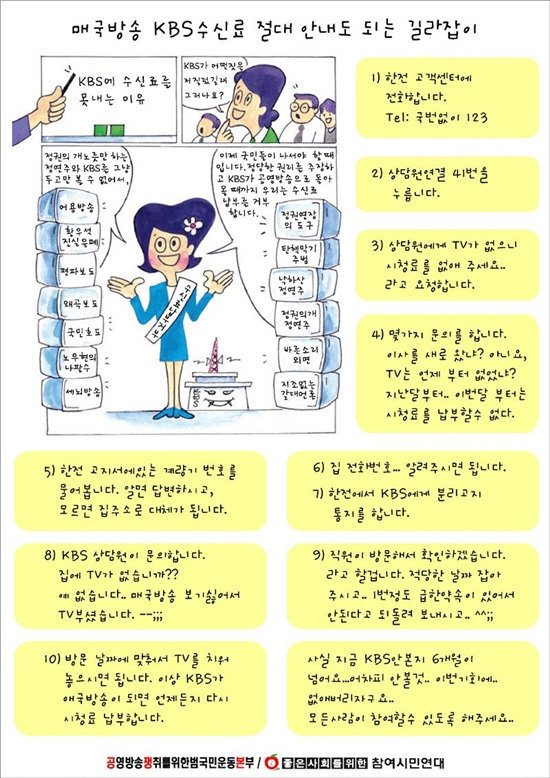 매국방송 KBS수신료 절대 안내도 되는 길라잡이
KBS에 수신료를
못내는 이유
KBS가 어떤짓을
저질렀길래
그러나요?
정권의 개노릇만 하는
정연주와 KBS는 그냥
두고만 볼 수 없어서,
이제 국민들이 나서야 할 때
입니다. 정당한 권리를 주장하
고 KBS가 공영방송으로 돌아
올 때까지 우리는 수신료
납부를 거부
합니다.
어용방송
황우석
진실은폐
편파보도
왜곡보도
국민호도
노무현의
나팔수
세뇌방송
정권연장
의 도구
탄핵막기
주범
낙하산
정연주
정권의개
정연주
바른소리
외면
지조없는
갈대언론
수신료납부거부
KBS
1) 한전 고객센터에
전화합니다.
Tel: 국번없이 123
2) 상담원연결 41번을
누릅니다.
3) 상담원에게 TV가 없으니
시청료를 없애 주세요..
라고 요청합니다.
4) 몇가지 문의를 합니다.
이사를 새로 왔냐? 아니요,
TV는 언제 부터 없었냐?
지난달부터.. 이번달 부터는
시청료를 납부할수 없다.
5) 한전 고지서에있는 계량기 번호를
물어봅니다. 알면 답변하시고,
모르면 집주소로 대체가 됩니다.
6) 집 전화번호... 알려주시면 됩니다.
7) 한전에서 KBS에게 분리고지
통지를 합니다.
8) KBS 상담원이 문의합니다.
집에 TV가 없습니까??
예 없습니다.. 매국방송 보기싫어서
TV부셨습니다. --;;;
9) 직원이 방문해서 확인하겠습니다.
라고 할겁니다. 적당한 날짜 잡아
주시고.. 1번정도 급한약속이 있어서
안된다고 되돌려 보내시고.. ^^;;
10) 방문 날짜에 맞춰서 TV를 치워
놓으시면 됩니다. 이상 KBS가
애국방송이 되면 언제든지 다시
시청료 납부합니다.
사실 지금 KBS안본지 6개월이
넘어요...어차피 안볼것.. 이번기회에..
없애버리자구요..
모든사람이 참여할수 있도록 해주세요..
공영방송쟁취를위한범국민운동본부 / 좋은사회를위한 참여시민연대